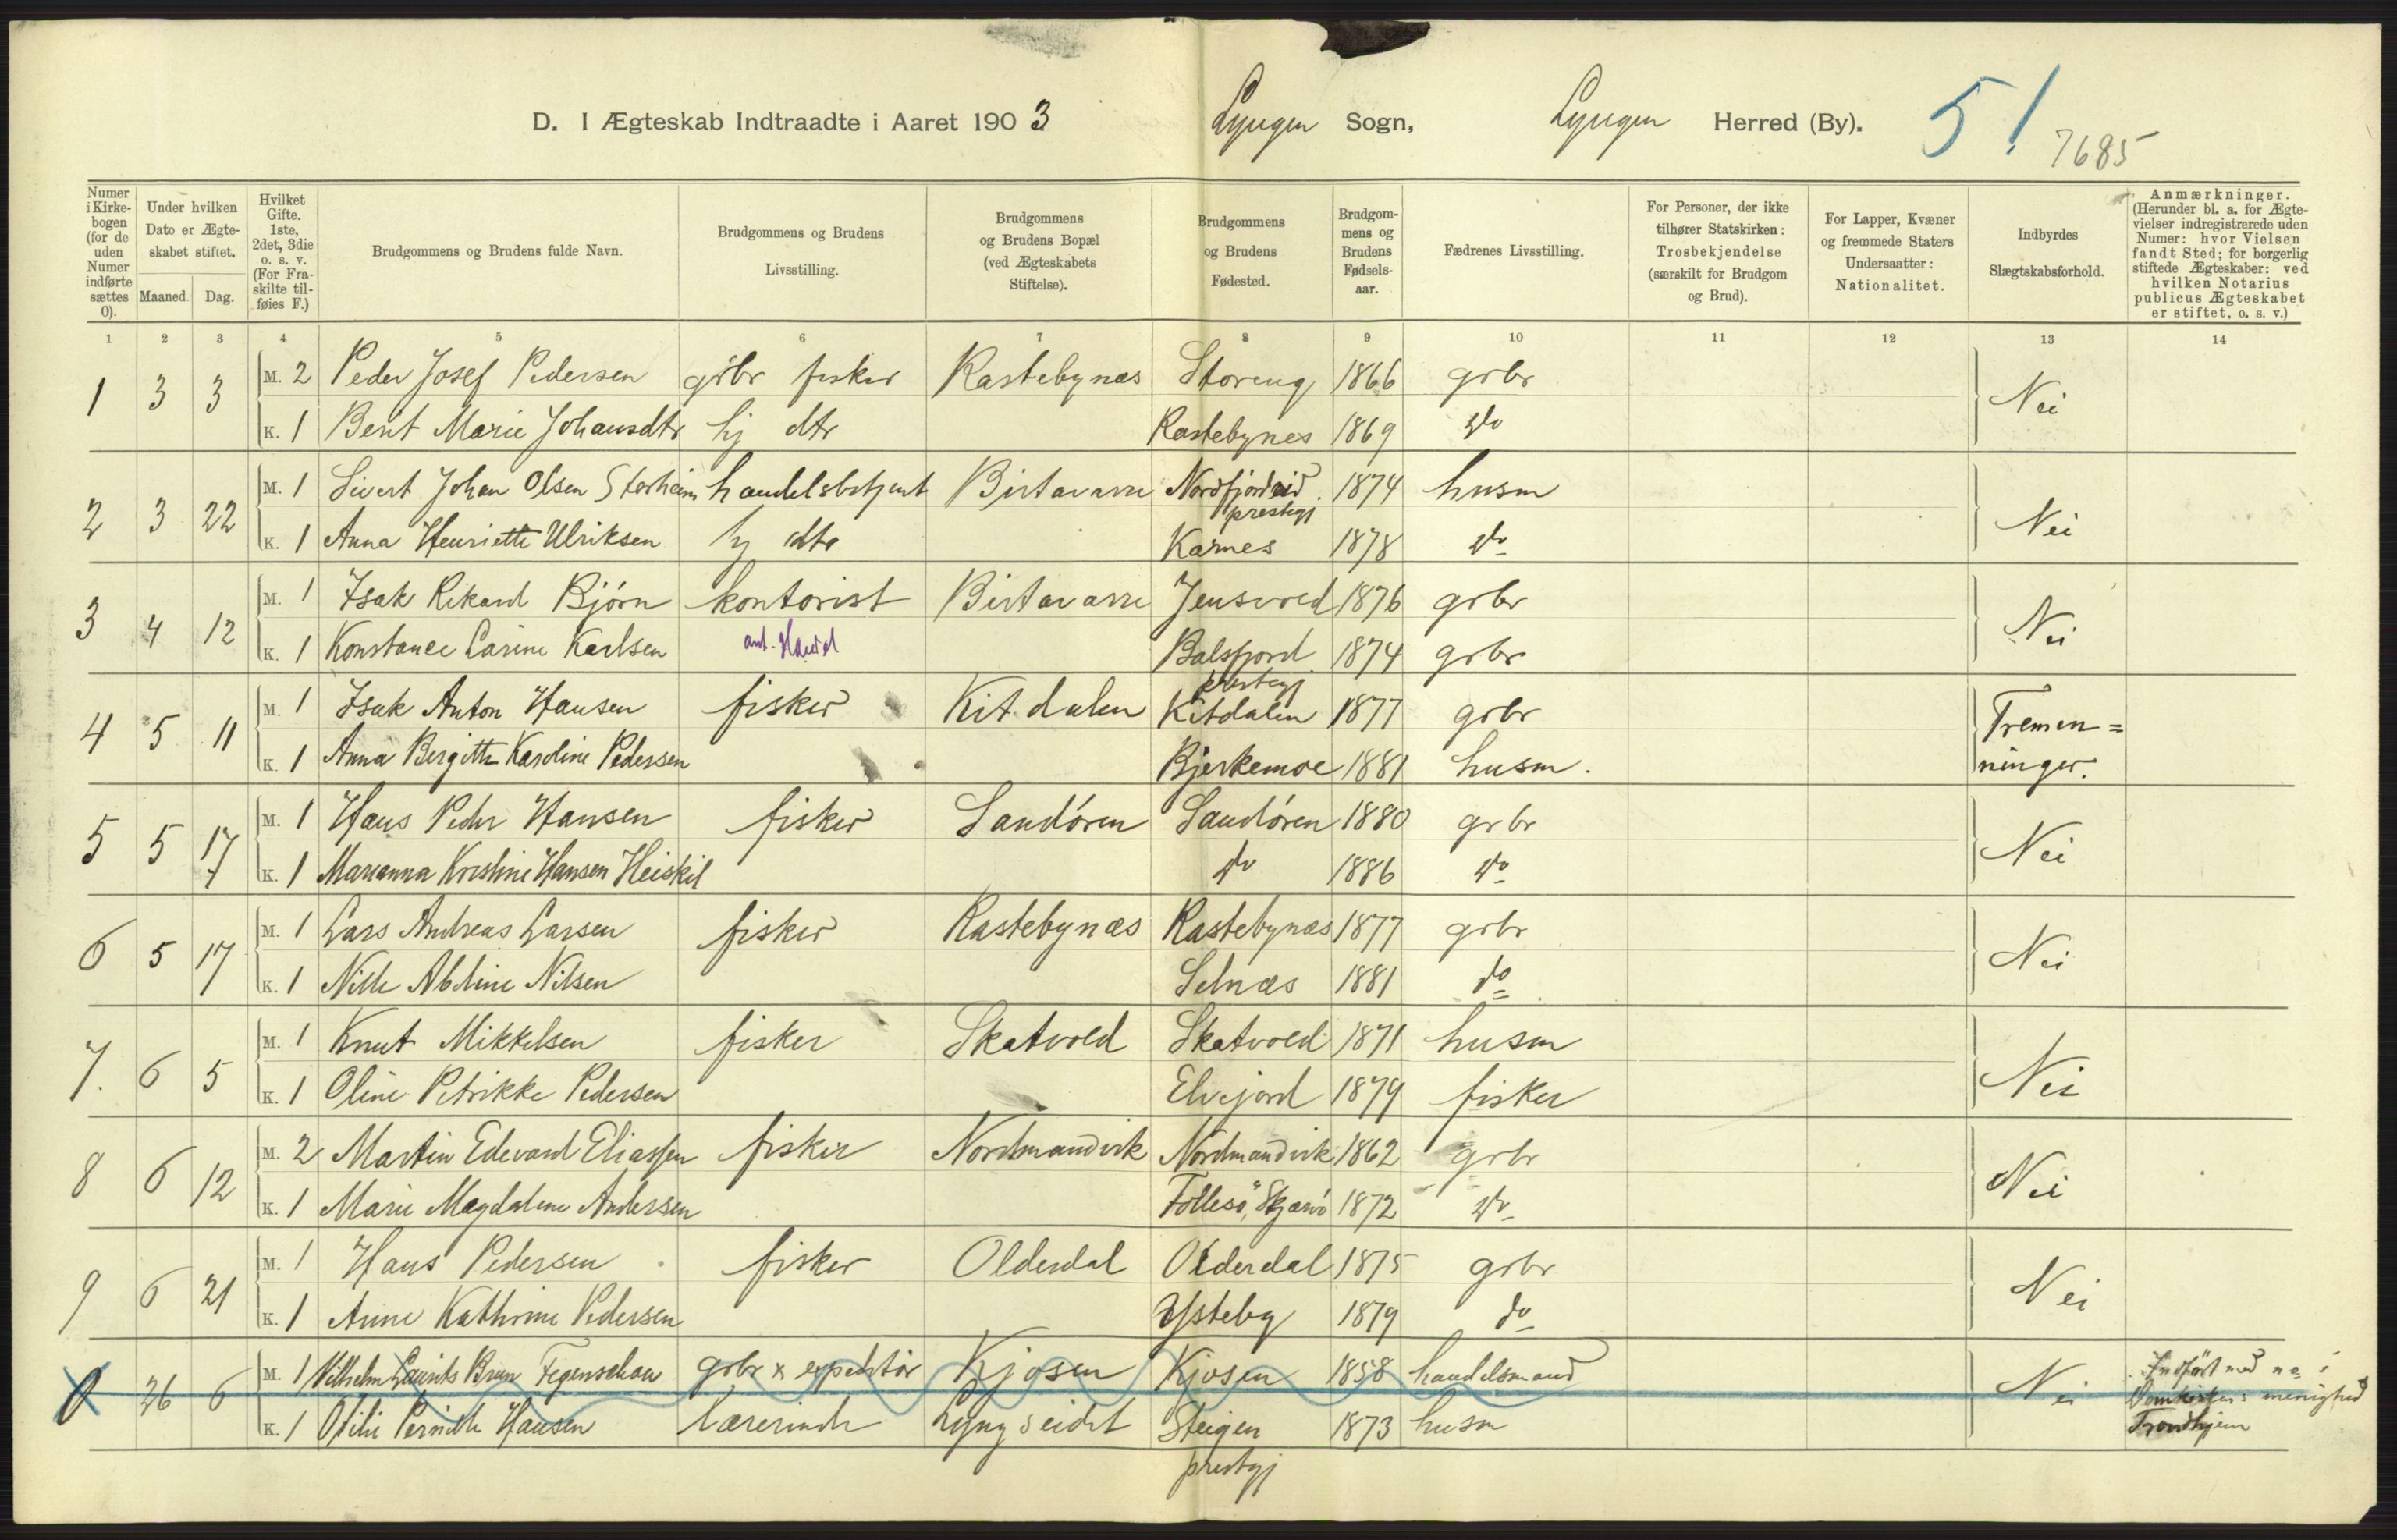 D. I Ægteskab Indtraadte i Aaret 1903 Lyngen Sogn, Lyngen Herred (By). 5! 7685
Numer i Kirkebogen (for de uden Numer indførte sættes 0).
Under hvilken Dato er Ægteskabet stiftet. Maaned. Dag.
Hvilket Gifte. 1ste, 2det, 3die o. s. v. (For Fraskilte tilføies F.)
Brudgommens og Brudens fulde Navn.
Brudgommens og Brudens Livsstilling.
Brudgommens og Brudens Bopæl (ved Ægteskabets Stiftelse).
Brudgommens og Brudens Fødested.
Brudgommens og Brudens Fødselsaar.
Fædrenes Livsstilling.
For Personer, der ikke tilhører Statskirken: Trosbekjendelse (særskilt for Brudgom og Brud).
For Lapper, Kvæner og fremmede Staters Undersaatter: Nationalitet.
Indbyrdes Slægtskabsforhold.
Anmærkninger. (Herunder bl. a. for Ægtevielser indregistrerede uden Numer: hvor Vielsen fandt Sted; for borgerlig stiftede Ægteskaber: ved hvilken Notarius publicus Ægteskabet er stiftet, o. s. v.)
1 2 3 4 5 6 7 8 9 10 11 12 13 14
1 3 3 M. 2 Peder Josef Pedersen grbr fisker Rastebynæs Storeng 1866 grbr Nei
K. 1 Berit Marie Johansdtr hj dtr Rastebynes 1869 do
2 3 22 M. 1 Sivert Johan Olsen Storheim handelsbetjent Birtavarre Nordfjordeid prestegj 1874 husm Nei
K. 1 Anna Henriette Ulriksen hj dtr Karnes 1878 do
3 4 12 M. 1 Isak Rikard Bjørn kontorist Birtavarre Jensvold 1876 grbr Nei
K. 1 Konstance Carine Karlsen Balsfjord prestegj 1874 grbr
4 5 11 M. 1 Isak Anton Hansen fisker Kitdalen Kitdalen 1877 grbr Tremen=
K. 1 Anna Bergitte Karoline Pedersen Bjerkemoe 1881 husm. ninger.
5 5 17 M. 1 Hans Peder Hansen fisker Sandøren Sandøren 1880 grbr Nei
K. 1 Marianna Kristine Hansen Heiskil do 1886 do
6 5 17 M. 1 Lars Andreas Larsen fisker Rastebynæs Rastebynæs 1877 grbr Nei
K. 1 Nille Abeline Nilsen Selnæs 1881 do
7. 6 5 M. 1 Knut Mikkelsen fisker Skatvold Skatvold 1871 husm Nei
K. 1 Oline Petrikke Pedersen Elvejord 1879 fisker
8 6 12 M. 2 Martin Edevard Eliassen fisker Nordmandvik Nordmandvik 1862 grbr Nei
K. 1 Marie Magdalene Andersen Follesø, Skjærvø 1872 do
9 6 21 M. 1 Hans Pedersen fisker Olderdal Olderdal 1875 grbr Nei
K. 1 Anne Kathrine Pedersen Ysteby 1879 do
0 26 6 M. 1 Vilhelm Laurits Brun Fegenschou grbr & expeditør Kjosen Kjosen 1858 handelsmand Nei Indført med no i
Domkirkens menighed
K. 1 Otilie Pernille Hansen lærerinde Lyngseidet Steigen 1873 husm Trondhjem
prestegj